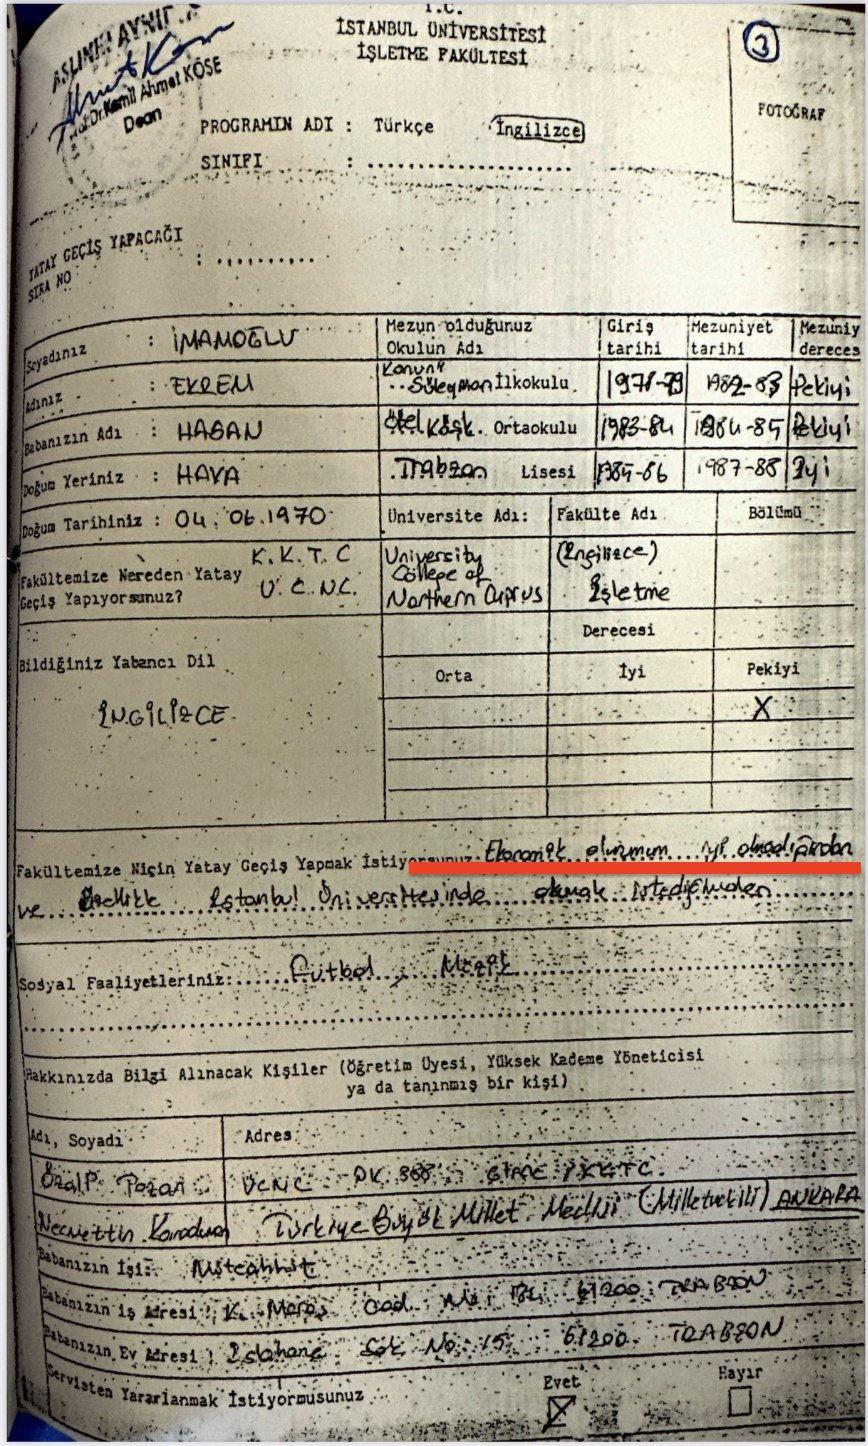 T.C.
İSTANBUL ÜNİVERSİTESİ
İŞLETME FAKÜLTESİ
3
ASLININ AYNIDIR
Prof.Dr.Kamil Ahmet KÖSE
Dean
FOTOĞRAF
PROGRAMIN ADI : Türkçe İngilizce
SINIFI : ....................
YATAY GEÇİŞ YAPACAĞI
SIRA NO : ..........
Soyadınız : İMAMOĞLU Mezun olduğunuz Okulun Adı Giriş tarihi Mezuniyet tarihi Mezuniy dereces
Adınız : EKREM Kanuni Süleyman İlkokulu 1978-79 1982-83 Pekiyi
Babanızın Adı : HASAN Köşk. Ortaokulu 1983-84 1984-85 Pekiyi
Doğum Yeriniz : HAVA Trabzon Lisesi 1985-86 1987-88 İyi
Doğum Tarihiniz : 04.06.1970 Üniversite Adı: Fakülte Adı Bölümü
Fakültemize Nereden Yatay Geçiş Yapıyorsunuz? K.K.T.C U.C.N.C. University College of Northern Cyprus (İngilizce) İşletme
Derecesi
Bildiğiniz Yabancı Dil Orta İyi Pekiyi
İNGİLİZCE X
Fakültemize Niçin Yatay Geçiş Yapmak İstiyorsunuz: Ekonomik durumum iyi olmadığından
ve özellikle İstanbul Üniversitesinde okumak istediğimden
Sosyal Faaliyetleriniz: Futbol, Müzik
Hakkınızda Bilgi Alınacak Kişiler (Öğretim Üyesi, Yüksek Kademe Yöneticisi
ya da tanınmış bir kişi)
Adı, Soyadı Adres
Özalp Pozan UCNC PK 388 GİRNE / KKTC.
Necmettin Karaduman Türkiye Büyük Millet Meclisi (Milletvekili) ANKARA
Babanızın İşi: Müteahhit
Babanızın iş Adresi : K. Maraş Cad. No: 61200 TRABZON
Babanızın Ev Adresi : Sok No 15 61200 TRABZON
Servisten Yararlanmak İstiyormusunuz Evet X Hayır